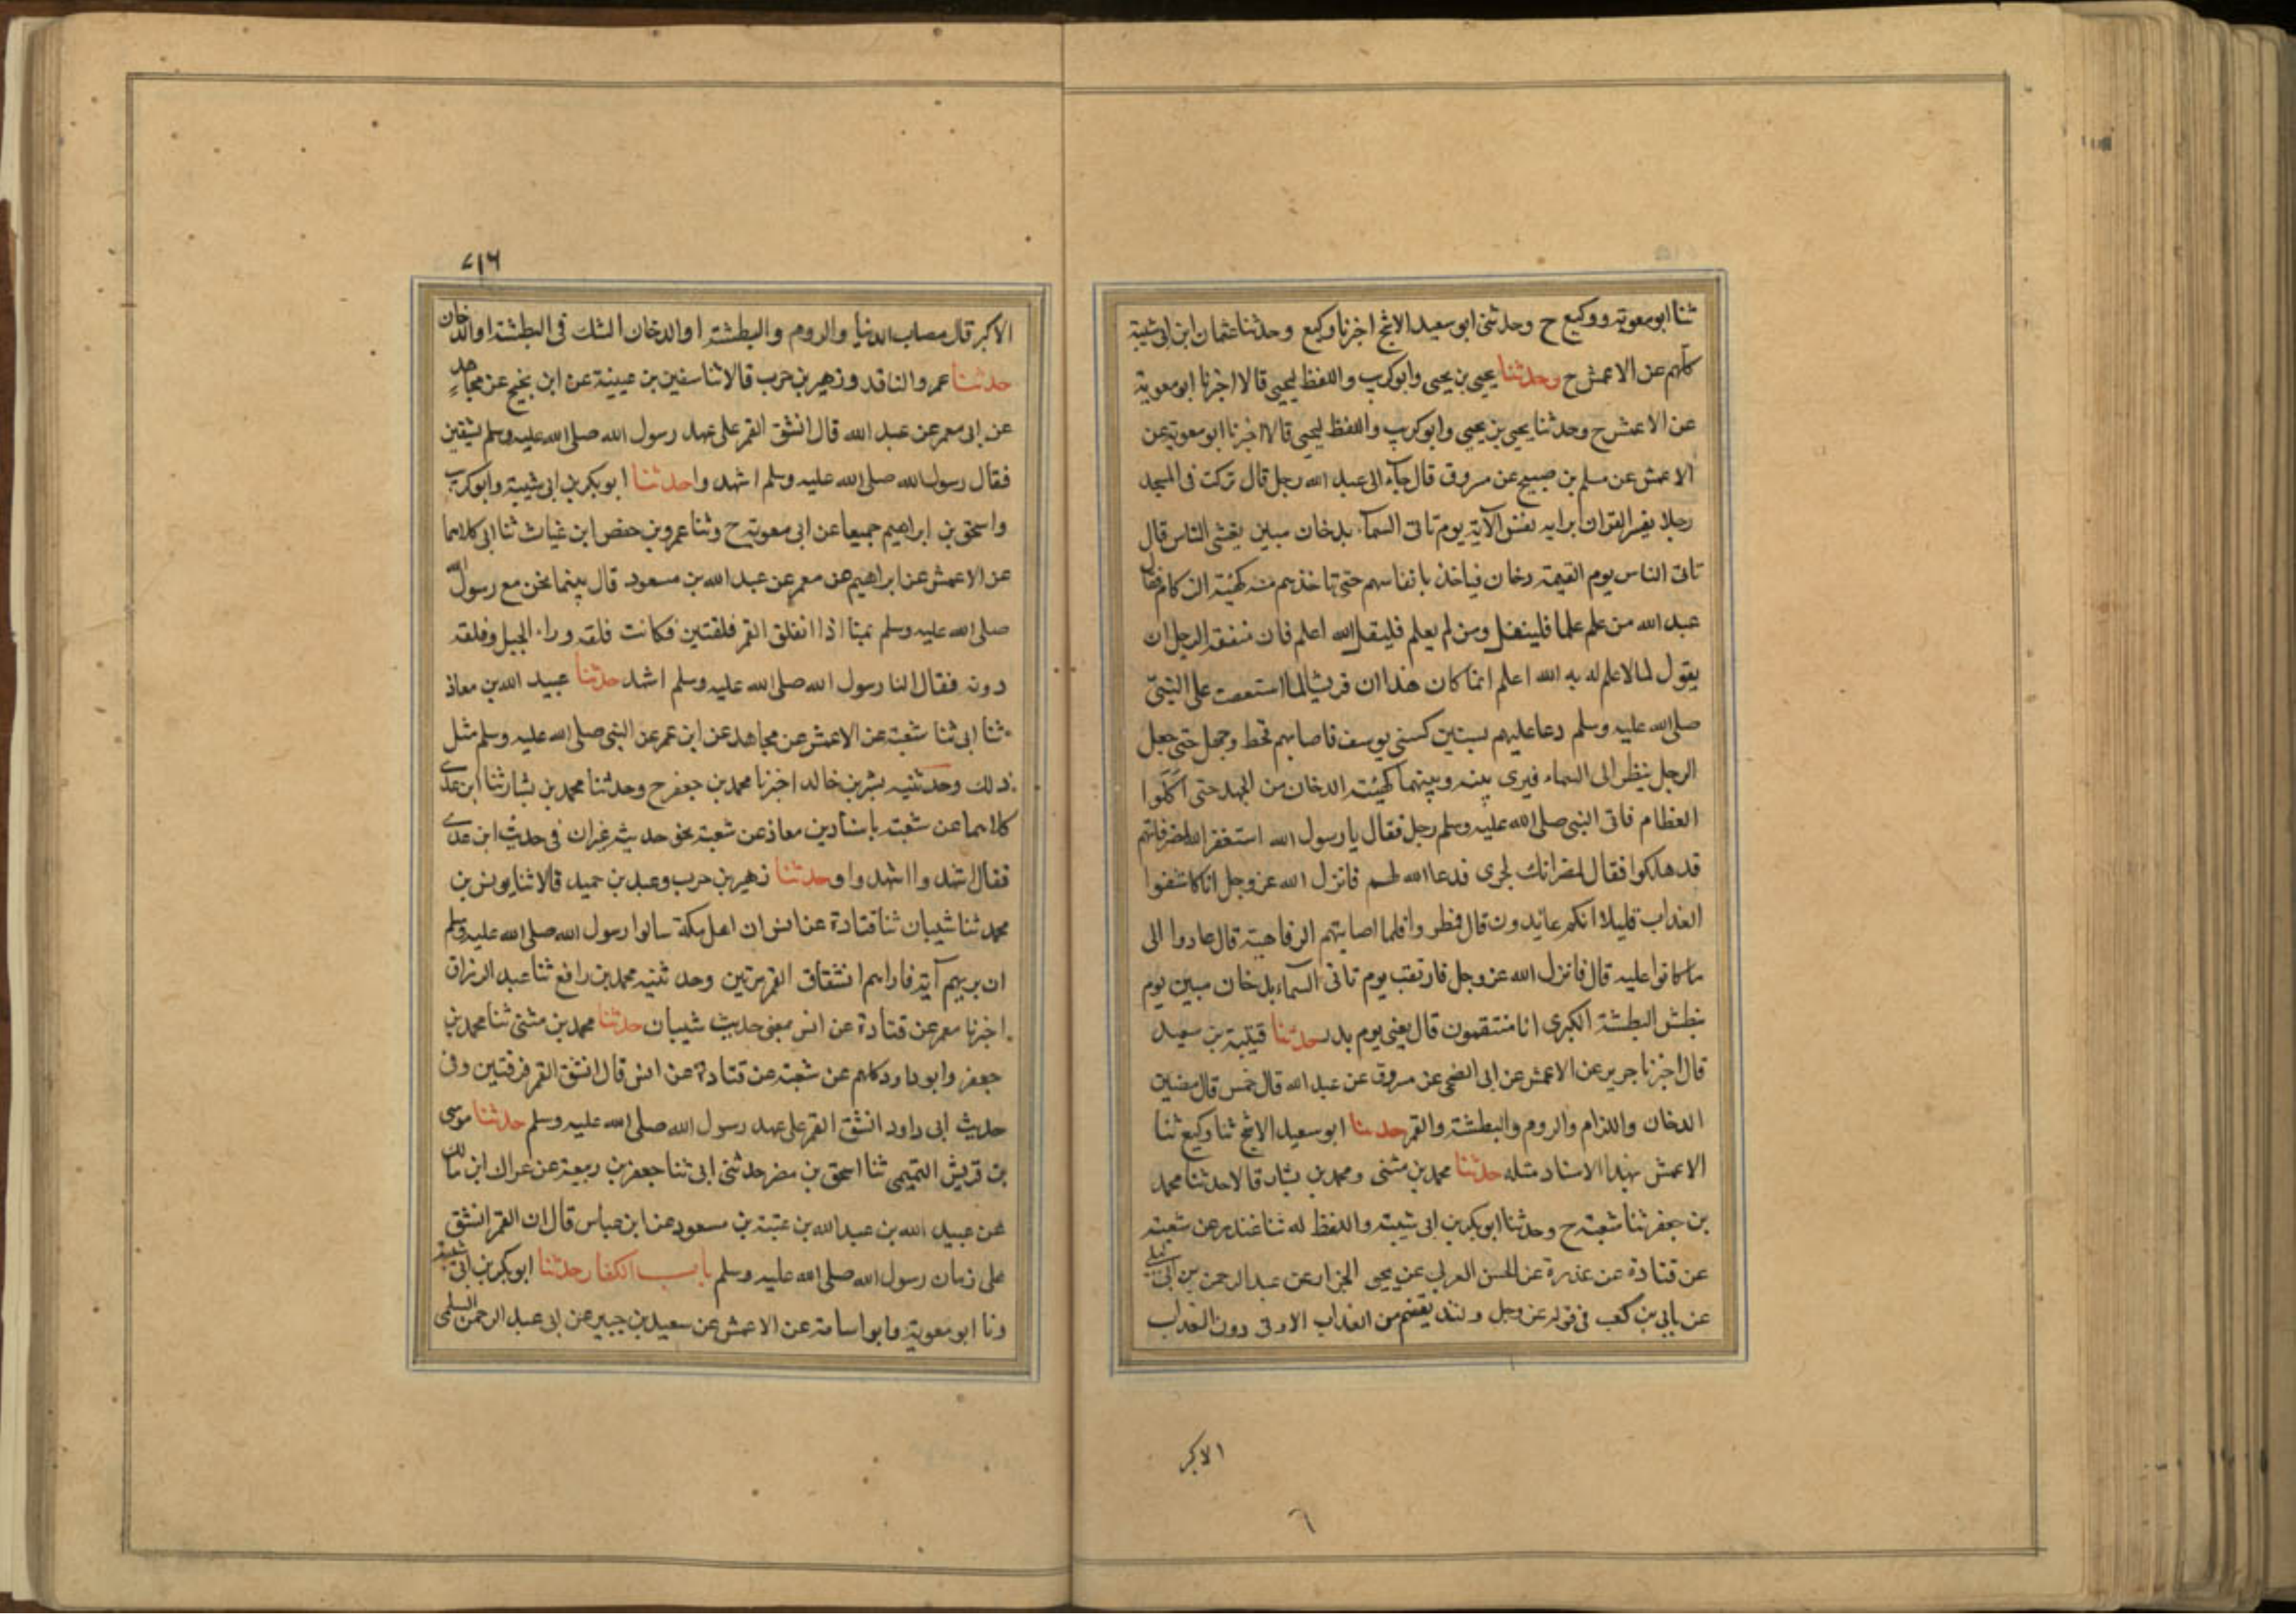 ثنا ابو معوية ووكيع ح وحدثنى ابو سعيد الاشج اخبرنا وكيع وحدثنا عثمان ابن ابى شيبة
كلهم عن الاعمش ح وحدثنا يحيى بن يحيى وابو كريب واللفظ ليحيى قالا اخبرنا ابو معوية
عن الاعمش ح وحدثنا يحيى بن يحيى وابو كريب واللفظ ليحيى قالا اخبرنا ابو معوية عن
الاعمش عن مسلم بن صبيح عن مسروق قال جاء الى عبد الله رجل قال تركت فى المسجد
رجلا يفسر القران برايه يفسر الآية يوم تاتى السماء بدخان مبين يغشى الناس قال
تاتى الناس يوم القيمة دخان فياخذ بانفاسهم حتى تاخذهم منه كهيئة الزكام فقال
عبد الله من علم علما فليقل ومن لم يعلم فليقل الله اعلم فان من فقه الرجل ان
يقول لما لا علم له به الله اعلم انما كان هذا ان قريشا لما استعصت على النبى
صلى الله عليه وسلم دعا عليهم بسنين كسنى يوسف فاصابهم قحط وجهد حتى جعل
الرجل ينظر الى السماء فيرى بينه وبينهما كهيئة الدخان من الجهد حتى اكلوا
العظام فاتى النبى صلى الله عليه وسلم رجل فقال يا رسول الله استغفر الله لمضر فانهم
قد هلكوا فقال لمضر انك لجرى فدعا الله لهم فانزل الله عز وجل انا كاشفوا
العذاب قليلا انكم عايدون قال فمطروا فلما اصابتهم الرفاهية قال عادوا الى
ما كانوا عليه قال فانزل الله عز وجل فارتقب يوم تاتى السماء بدخان مبين يوم
نبطش البطشة الكبرى انا منتقمون قال يعنى يوم بدر حدثنا قتيبة بن سعيد
قال اخبرنا جرير عن الاعمش عن ابى الضحى عن مسروق عن عبد الله قال خمس قال مضين
الدخان واللزام والروم والبطشة والقمر حدثنا ابو سعيد الاشج ثنا وكيع ثنا
الاعمش بهذا الاسناد مثله حدثنا محمد بن مثنى ومحمد بن بشار قالا حدثنا محمد
بن جعفر ثنا شعبة ح وحدثنا ابو بكر بن ابى شيبة واللفظ له ثنا غندر عن شعبة
عن قتادة عن عذرة عن الحسن العرنى عن يحيى الجزار عن عبد الرحمن بن ابى ليلى
عن ابى بن كعب فى قوله عز وجل ولنذيقنهم من العذاب الادنى دون العذاب
الاكبر
٦
٧١٦
الاكبر قال مصاب الدنيا والروم والبطشة او الدخان الشك فى البطشة او الدخان
حدثنا عمرو الناقد وزهير بن حرب قالا ثنا سفين بن عيينة عن ابن نجيح عن مجاهد
عن ابى معمر عن عبد الله قال انشق القمر على عهد رسول الله صلى الله عليه وسلم بشقين
فقال رسول الله صلى الله عليه وسلم اشهدوا حدثنا ابو بكر بن ابى شيبة وابو كريب
واسحق بن ابراهيم جميعا عن ابى معوية ح وثنا عمرو بن حفص ابن غياث ثنا ابى كلاهما
عن الاعمش عن ابراهيم عن معمر عن عبد الله بن مسعود قال بينما نحن مع رسول الله
صلى الله عليه وسلم بمنا اذا انفلق القمر فلقتين فكانت فلقه وراء الجبل وفلقه
دونه فقال لنا رسول الله صلى الله عليه وسلم اشهد حدثنا عبيد الله بن معاذ
ثنا ابى ثنا شعبة عن الاعمش عن مجاهد عن ابن عمر عن النبى صلى الله عليه وسلم مثل
ذلك وحدثنيه بشر بن خالد اخبرنا محمد بن جعفر ح وحدثنا محمد بن بشار ثنا ابن عدى
كلاهما عن شعبة باسناد بن معاذ عن شعبة نحو حديثه غير ان فى حديث ابن عدى
فقال اشهدوا اشهدوا وحدثنا زهير بن حرب وعبد بن حميد قالا ثنا يونس بن
محمد ثنا شيبان ثنا قتادة عن انس ان اهل مكة سالوا رسول الله صلى الله عليه وسلم
ان يريهم آية فاراهم انشقاق القمر مرتين وحدثنيه محمد بن رافع ثنا عبد الرزاق
اخبرنا معمر عن قتادة عن انس بمعنى حديث شيبان حدثنا محمد بن مثنى ثنا محمد بن
جعفر وابو داود كلهم عن شعبة عن قتادة عن انس قال انشق القمر فرقتين وفى
حديث ابى داود انشق القمر على عهد رسول الله صلى الله عليه وسلم حدثنا موسى
بن قريش التميمى ثنا اسحق بن مضر حدثنى ابى ثنا جعفر بن ربيعة عن عراك ابن مالك
عن عبيد الله بن عبد الله بن عتبة بن مسعود عن ابن عباس قال ان القمر انشق
على زمان رسول الله صلى الله عليه وسلم باب الكفار حدثنا ابو بكر بن ابى شيبة
ونا ابو معوية وابو اسامة عن الاعمش عن سعيد بن جبير عن ابى عبد الرحمن السلمى